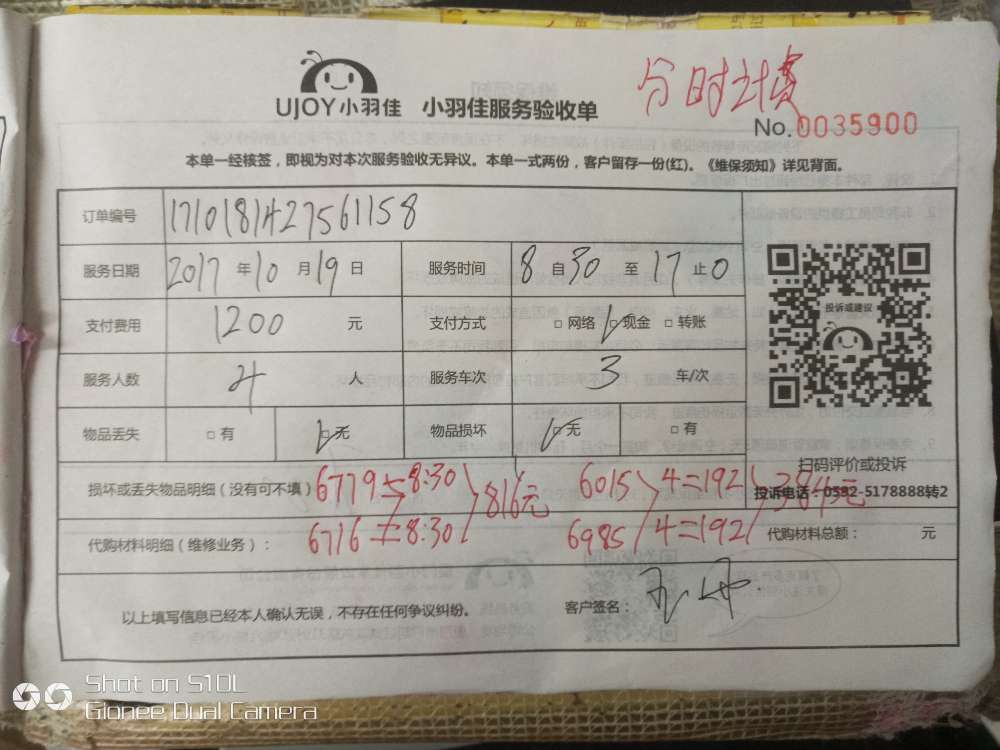 分时计费
UJOY小羽佳 小羽佳服务验收单
No.0035900
本单一经核签，即视为对本次服务验收无异议。本单一式两份，客户留存一份(红)。《维保须知》详见背面。
订单编号 1710181427561158
服务日期 2017 年 10 月 19 日 服务时间 8 自 30 至 17 止 0
支付费用 1200 元 支付方式 □ 网络 ☑ 现金 □ 转账
服务人数 4 人 服务车次 3 车/次
物品丢失 □ 有 ☑ 无 物品损坏 ☑ 无 □ 有
投诉或建议
扫码评价或投诉
投诉电话：0592-5178888转2
损坏或丢失物品明细（没有可不填） 6779 8:30 816元 6015 4=192 384元
代购材料明细（维修业务）： 6716 8:30 6985 4=192 代购材料总额： 元
以上填写信息已经本人确认无误，不存在任何争议纠纷。 客户签名：
Shot on S10L
Gionee Dual Camera